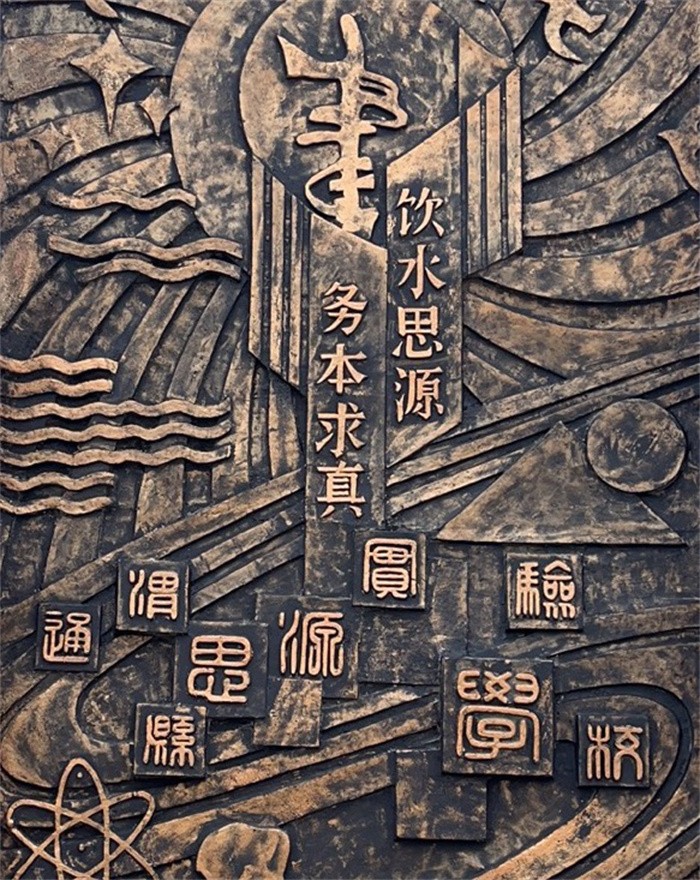 饮水思源
务本求真
通渭縣
思源
實驗
學校